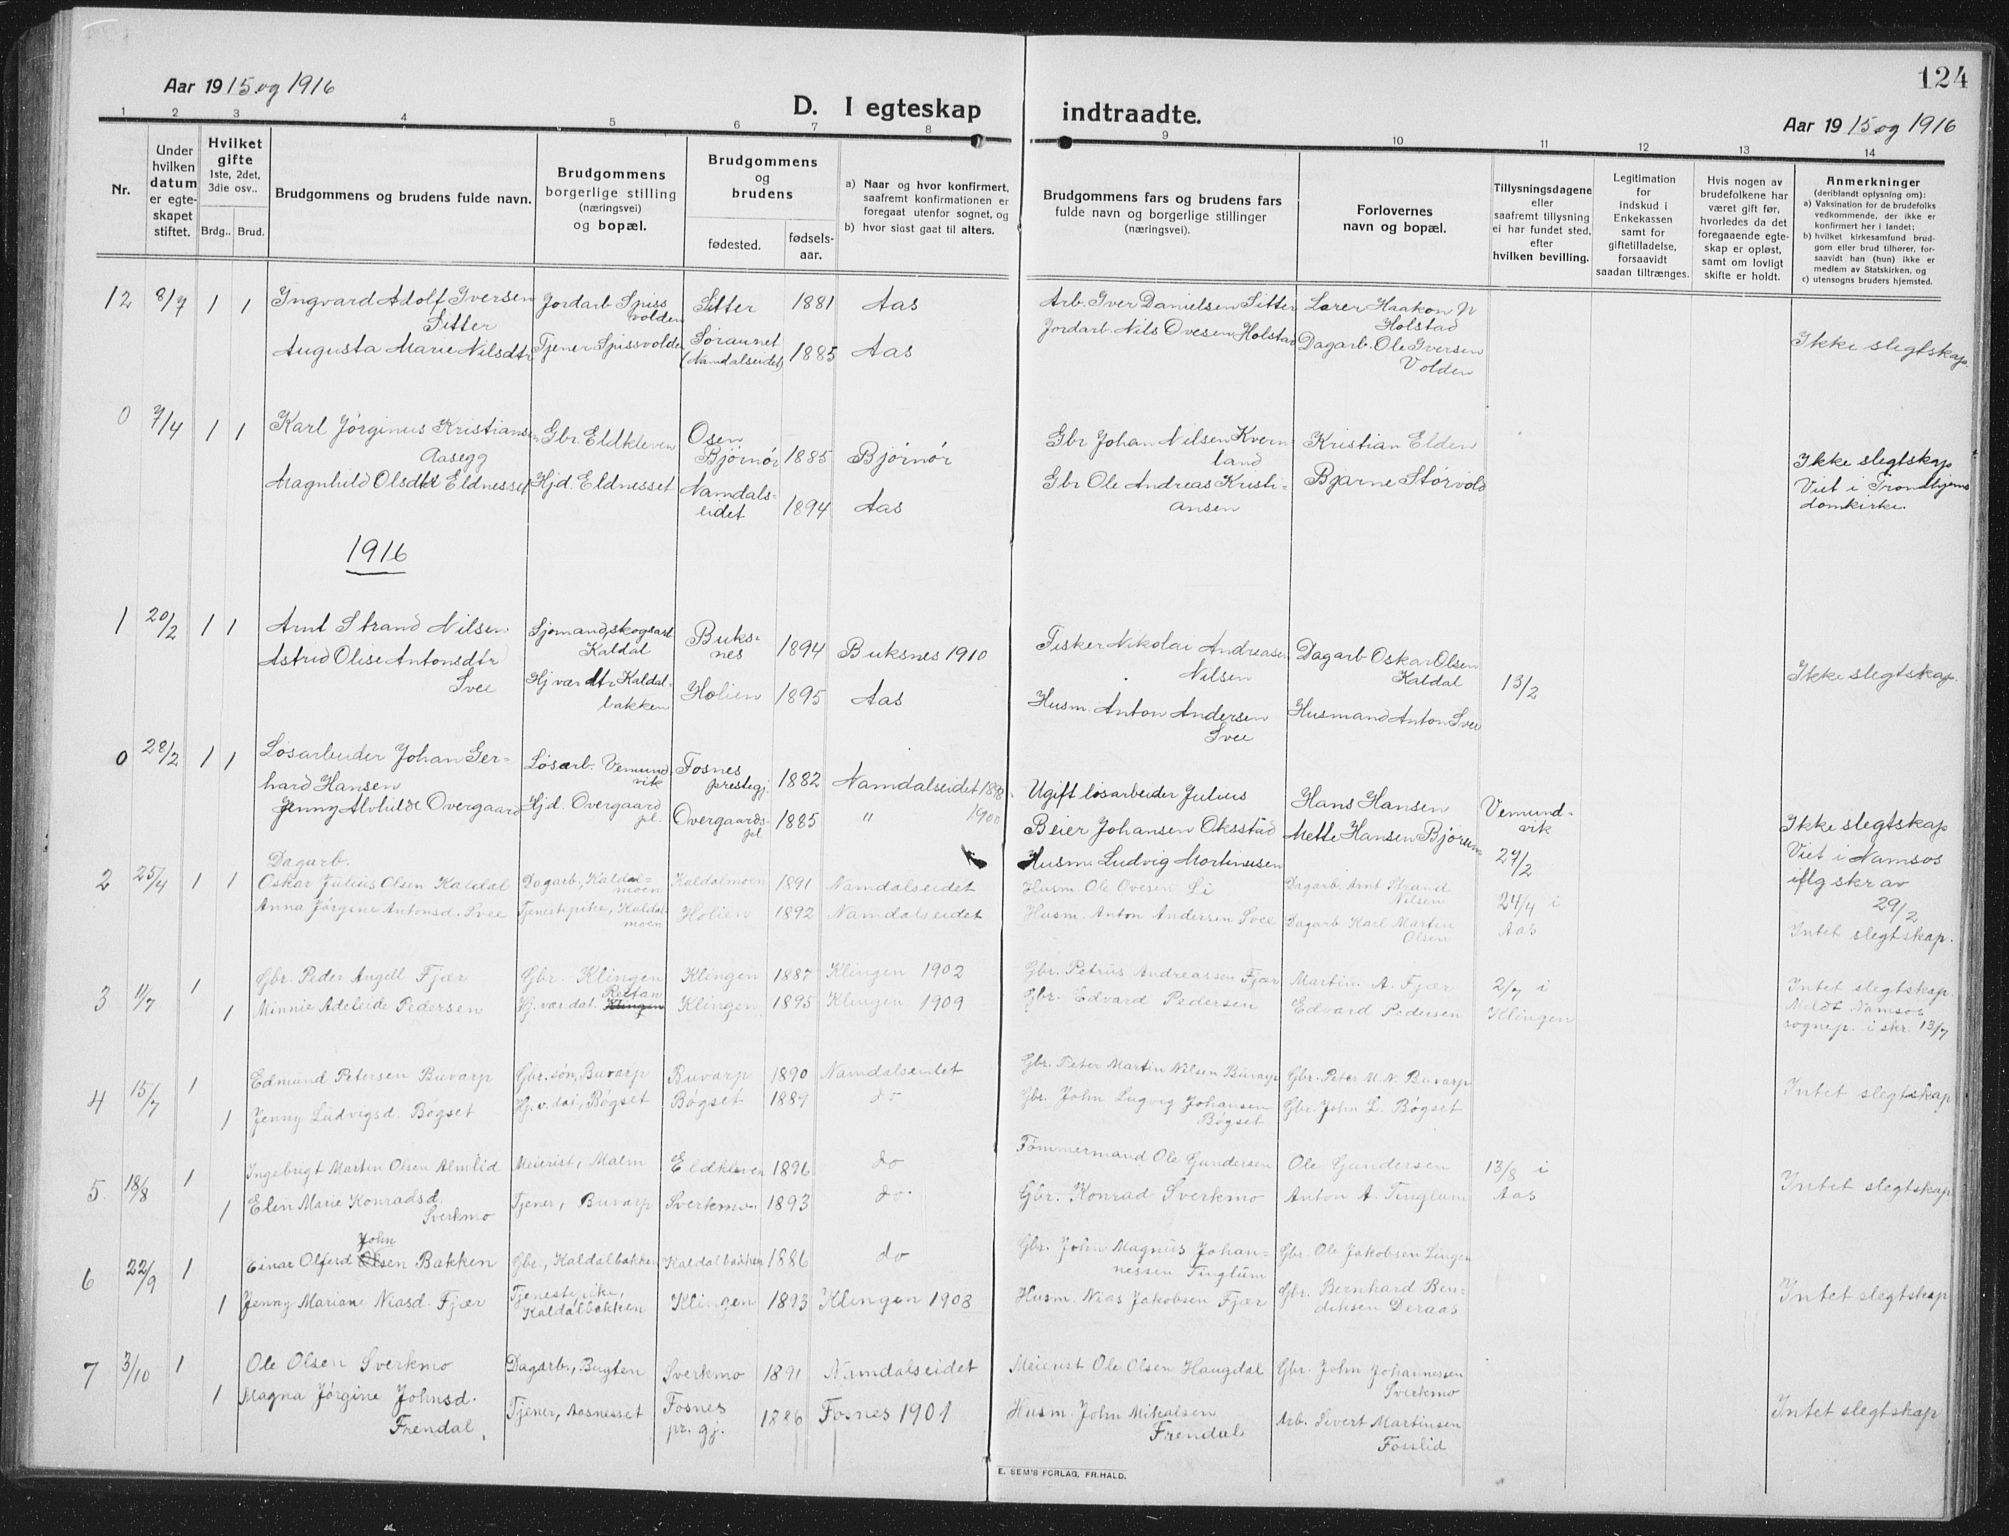 124
Aar 1915 og 1916
D. I egteskap indtraadte.
Aar 1915 og 1916
1 2 3 4 5 6 7 8 9 10 11 12 13 14
Nr.
Under hvilken datum er egteskapet stiftet.
Hvilket gifte 1ste, 2det, 3die osv..
Brdg.. Brud.
Brudgommens og brudens fulde navn.
Brudgommens borgerlige stilling (næringsvei) og bopæl.
Brudgommens og brudens
fødested.
fødsels-aar.
a) Naar og hvor konfirmert, saafremt konfirmationen er foregaat utenfor sognet, og
b) hvor sidst gaat til alters.
Brudgommens fars og brudens fars fulde navn og borgerlige stillinger (næringsvei).
Forlovernes navn og bopæl.
Tillysningsdagene eller saafremt tillysning ei har fundet sted, efter hvilken bevilling.
Legitimation for indskud i Enkekassen samt for giftetilladelse, forsaavidt saadan tiltrænges.
Hvis nogen av brudefolkene har været gift før, hvorledes da det foregaaende egteskap er opløst, samt om lovligt skifte er holdt.
Anmerkninger (deriblandt oplysning om):
a) Vaksination for de brudefolks vedkommende, der ikke er konfirmert her i landet;
b) hvilket kirkesamfund brudgom eller brud tilhører, forsaavidt han (hun) ikke er medlem av Statskirken, og
c) utensogns bruders hjemsted.
12 8/7 1 1 Ingvard Adolf Iversen Sitter Jordarb Spissvolden Sitter 1881 Aas Arb. Iver Danielsen Sitter Lærer Haakon N Holstad
Augusta Marie Nilsdtr Tjener Spissvolden Søraunet (Namdalseidet) 1885 Aas Jordarb. Nils Ovesen Holstad Dagarb. Ole Iversen Volden Ikke slegtskap.
0 7/4 1 1 Karl Jørginus Kristiansen Aasegg Gbr. Eldkleven Osen Bjørnør 1885 Bjørnør Gbr Johan Nilsen Kvernland Kristian Elden
Magnhild Olsdtr Eldnesset Hjd. Eldnesset Namdalseidet 1894 Aas Gbr Ole Andreas Kristiansen Bjarne Størvold Ikke slegtskap Viet i Trondhjems domkirke.
1916
1 20/2 1 1 Arnt Strand Nilsen Sjømand, skogsarb Kaldal Buksnes 1894 Buksnes 1910 Fisker Nikolai Andreasen Nilsen Dagarb Oskar Olsen Kaldal 13/2
Astrid Olise Antonsdtr Svee Hj værdtr Kaldalbakken Holien 1895 Aas Husm. Anton Andersen Svee Husmand Anton Svee Ikke slegtskap.
0 28/2 1 1 Løsarbeider Johan Gerhard Hansen Løsarb. Vemundvik Fosnes prestegj. 1882 Namdalseidet 1898 Ugift løsarbeider Julius Beier Johansen Oksstad Hans Hansen Vemundvik 27/2
Jenny Alvhilde Overgaard Hjd. Overgaard pl. Overgaards pl. 1885 " 1900 Husm. Ludvig Martinusen Mette Hansen Bjørum Ikke slegtskap Viet i Namsos iflg skr av 29/2
2 25/4 1 1 Dagarb. Oskar Julius Olsen Kaldal Dagarb., Kaldalmoen Kaldalmoen 1891 Namdalseidet Husm Ole Ovesen Li Dagarb. Arnt Strand Nilsen 24/4 i Aas
Anna Jørgine Antonsd. Svee Tjenestepike, Kaldalmoen Holien 1892 Namdalseidet Husm. Anton Andersen Svee Dagarb Karl Martin Olsen Intet slegtskap.
3 11/7 1 Gbr. Peder Angell Fjær Gbr. Klingen Klingen 1887 Klingen 1902 Gbr. Petrus Andreassen Fjær Martin A. Fjær 2/7 i Klingen
1 Minnie Adeleide Pedersen Hj. vær. dat. Klingen 1895 Klingen 1909 Gbr. Edvard Pedersen Edvard Pedersen Intet slegtskap. Meldt Namsos sognep. i skr. 13/7
4 15/7 1 Edmund Petersen Buvarp Gbr. søn, Buvarp Buvarp 1890 Namdalseidet Gbr. Peter Martin Nilsen Buvarp Gbr. Peter M. N. Buvarp
1 Jenny Ludvigsd. Bøgset Hj. v. dat., Bøgset Bøgset 1889 do Gbr. John Lugvig Johansen Bøgset Gbr. John L. Bøgset Intet slegtskap
5. 18/8 1 Ingebrigt Martin Olsen Almlid Meierist, Malm Eldkleven 1896 do Tømmermand Ole Gundersen Ole Gundersen 13/8 i Aas
1 Elen Marie Konradsd. Sverkmo Tjener, Buvarp Sverkmo. 1893 do. Gbr. Konrad Sverkmo Anton A. Tinglum Intet slegtskap
6 22/9 1 Einar Olferd John Olsen Bakken Gbr., Kaldalbakken Kaldalbakken 1886 do Gbr. John Magnus Johannessen Tinglum Gbr. Ole Jakobsen Lingen
1 Jenny Marian Niasd. Fjær Tjenestepike, Kaldalbakken Klingen 1893 Klingen 1908 Husm. Nias Jakobsen Fjær Gbr. Bernhard Bendiksen Deraas Intet slegtskap
7 3/10 1 Ole Olsen Sverkmo Dagarb., Bugten Sverkmo 1891 Namdalseidet Meierist Ole Olsen Haugdal Gbr. John Johannessen Sverkmo
1 Magna Jørgine Johnsd. Frendal Tjener, Aasnesset Fosnes pr. gj. 1886 Fosnes 1901 Husm. John Mikalsen Frendal Arb. Sivert Martinsen Fosslid Intet slegtskap
E. SEM'S FORLAG, FR.HALD.